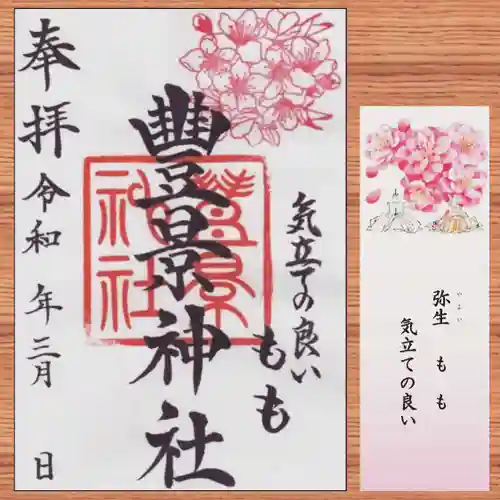 奉拝
令和 年三月 日
豐景神社
豊景神社
気立ての良い
もも
弥生 もも
やよい
気立ての良い